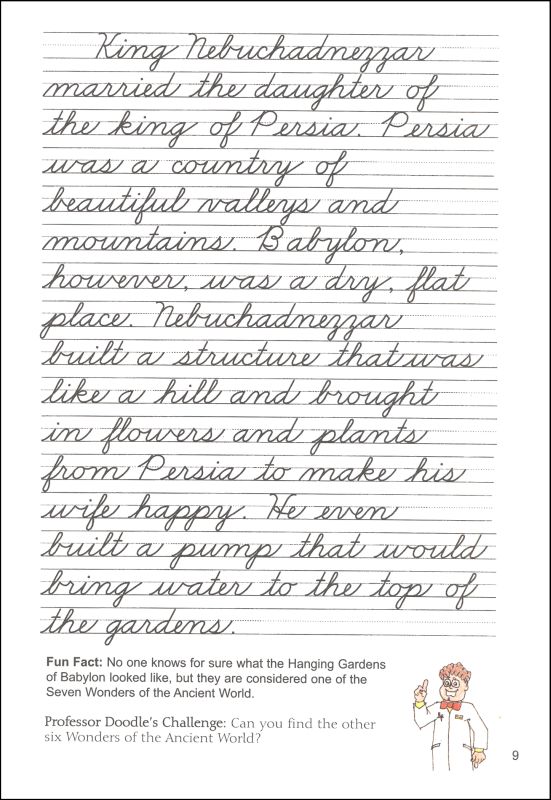 King Nebuchadnezzar
married the daughter of
the king of Persia. Persia
was a country of
beautiful valleys and
mountains. Babylon,
however, was a dry, flat
place. Nebuchadnezzar
built a structure that was
like a hill and brought
in flowers and plants
from Persia to make his
wife happy. He even
built a pump that would
bring water to the top of
the gardens.
Fun Fact: No one knows for sure what the Hanging Gardens
of Babylon looked like, but they are considered one of the
Seven Wonders of the Ancient World.
Professor Doodle's Challenge: Can you find the other
six Wonders of the Ancient World?
9